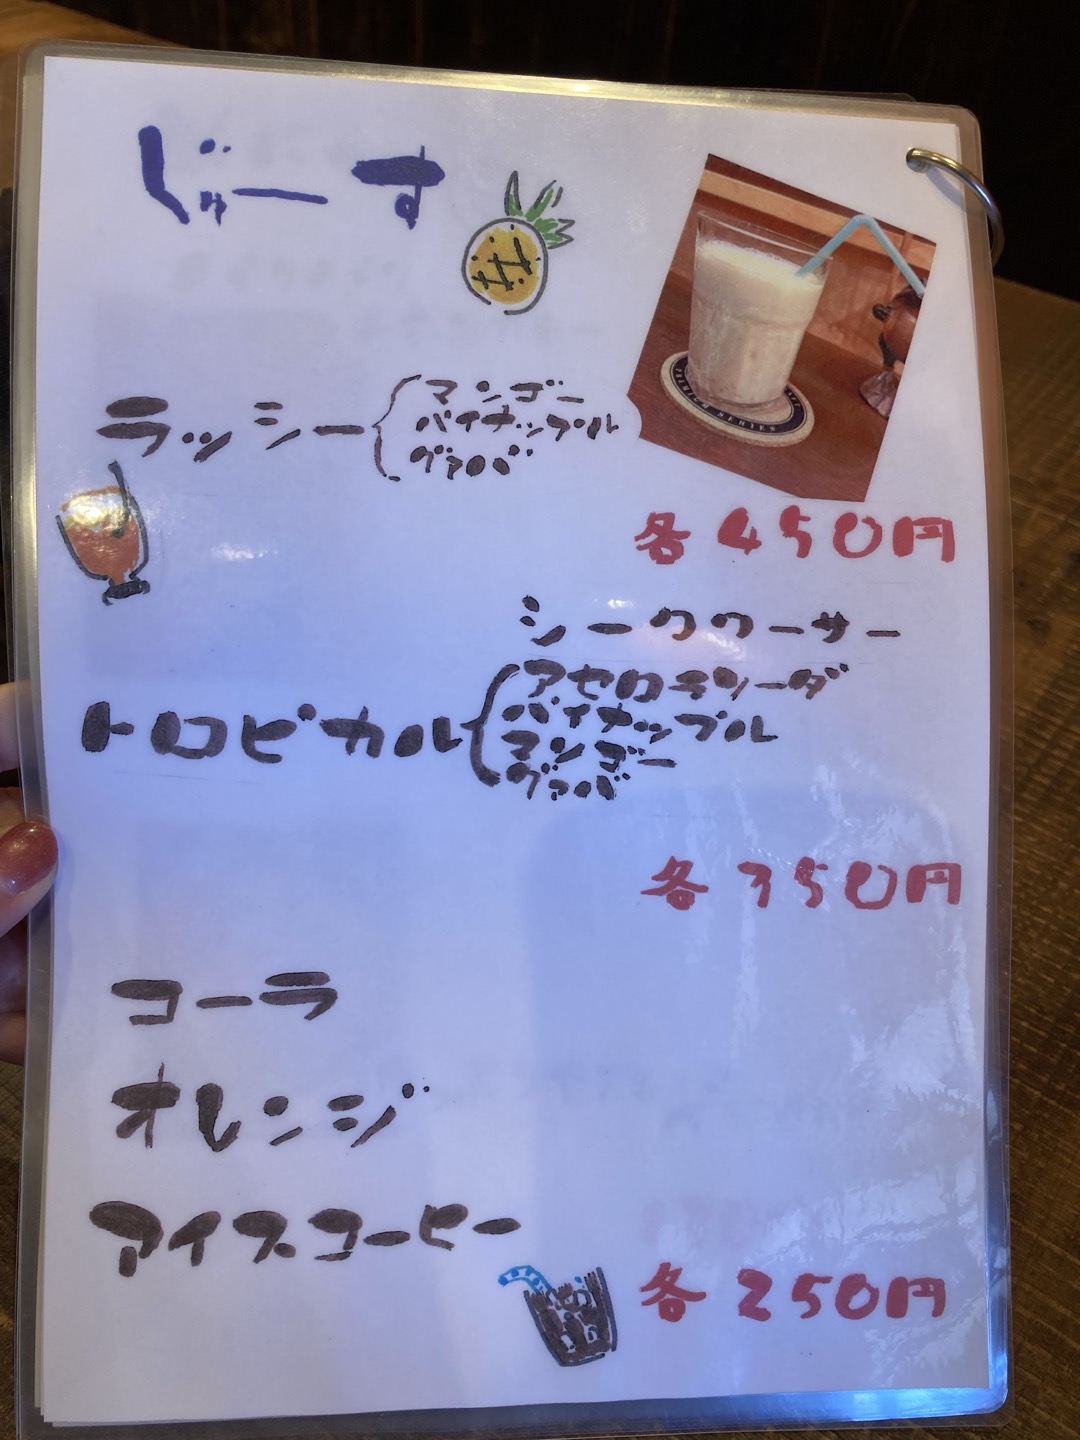 じゅーす
ラッシー
マンゴー
パイナップル
グァバ
各450円
シークワーサー
トロピカル
アセロラソーダ
パイナップル
マンゴー
グァバ
各350円
コーラ
オレンジ
アイスコーヒー
各250円